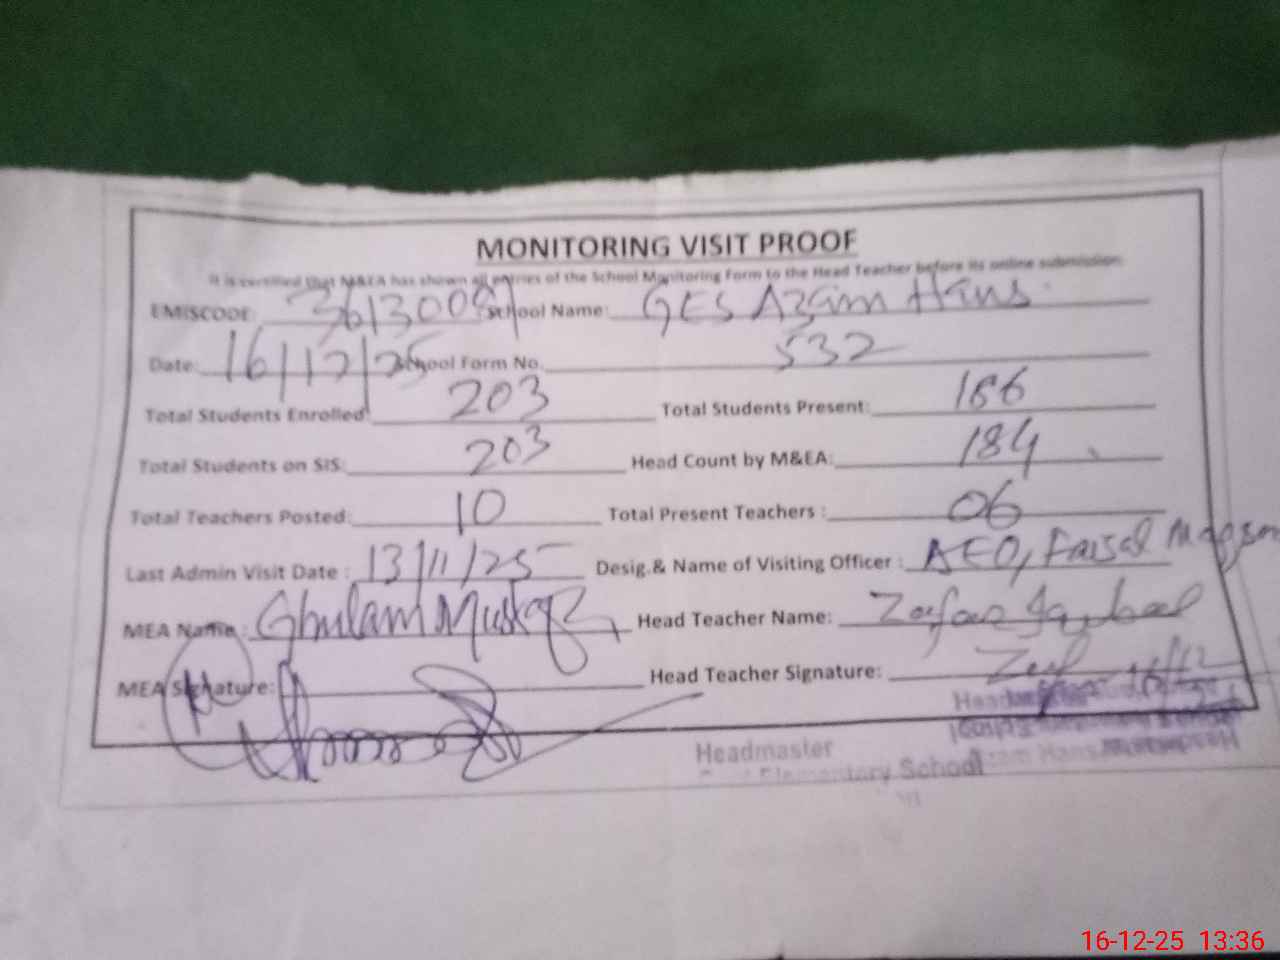 MONITORING VISIT PROOF
It is certified that M&EA has shown all entries of the School Monitoring Form to the Head Teacher before its online submission.
EMISCODE: School Name: GES Azam Hans
Date: 16/12/25 School Form No. 532
Total Students Enrolled: 203 Total Students Present: 186
Total Students on SIS: 203 Head Count by M&EA: 184
Total Teachers Posted: 10 Total Present Teachers : 06
Last Admin Visit Date : 13/11/25 Desig.& Name of Visiting Officer : AEO, Faisal
MEA Name : Ghulam Head Teacher Name: Zafar Iqbal
MEA Signature: Head Teacher Signature: 16/12
Headmaster
Elementary School
16-12-25 13:36